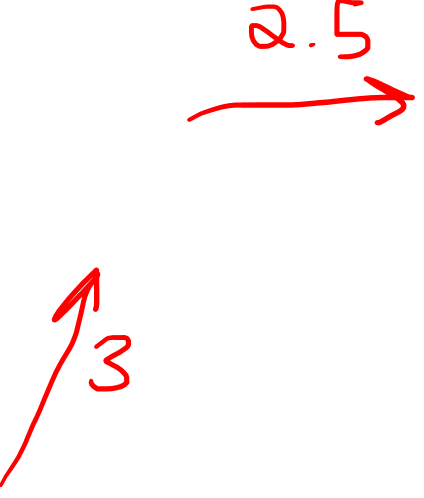 2.5
3